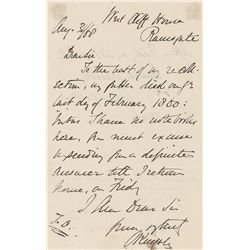 West Cliff House
Ramsgate
Aug 3/68
Dear Sir
To the best of my recoll-
ection, my father died on the
last day of February 1860:
but as I have no note books
here, you must excuse
my sending you a definite
answer till I return
home, on Friday
I am Dear Sir
yours
T.O.